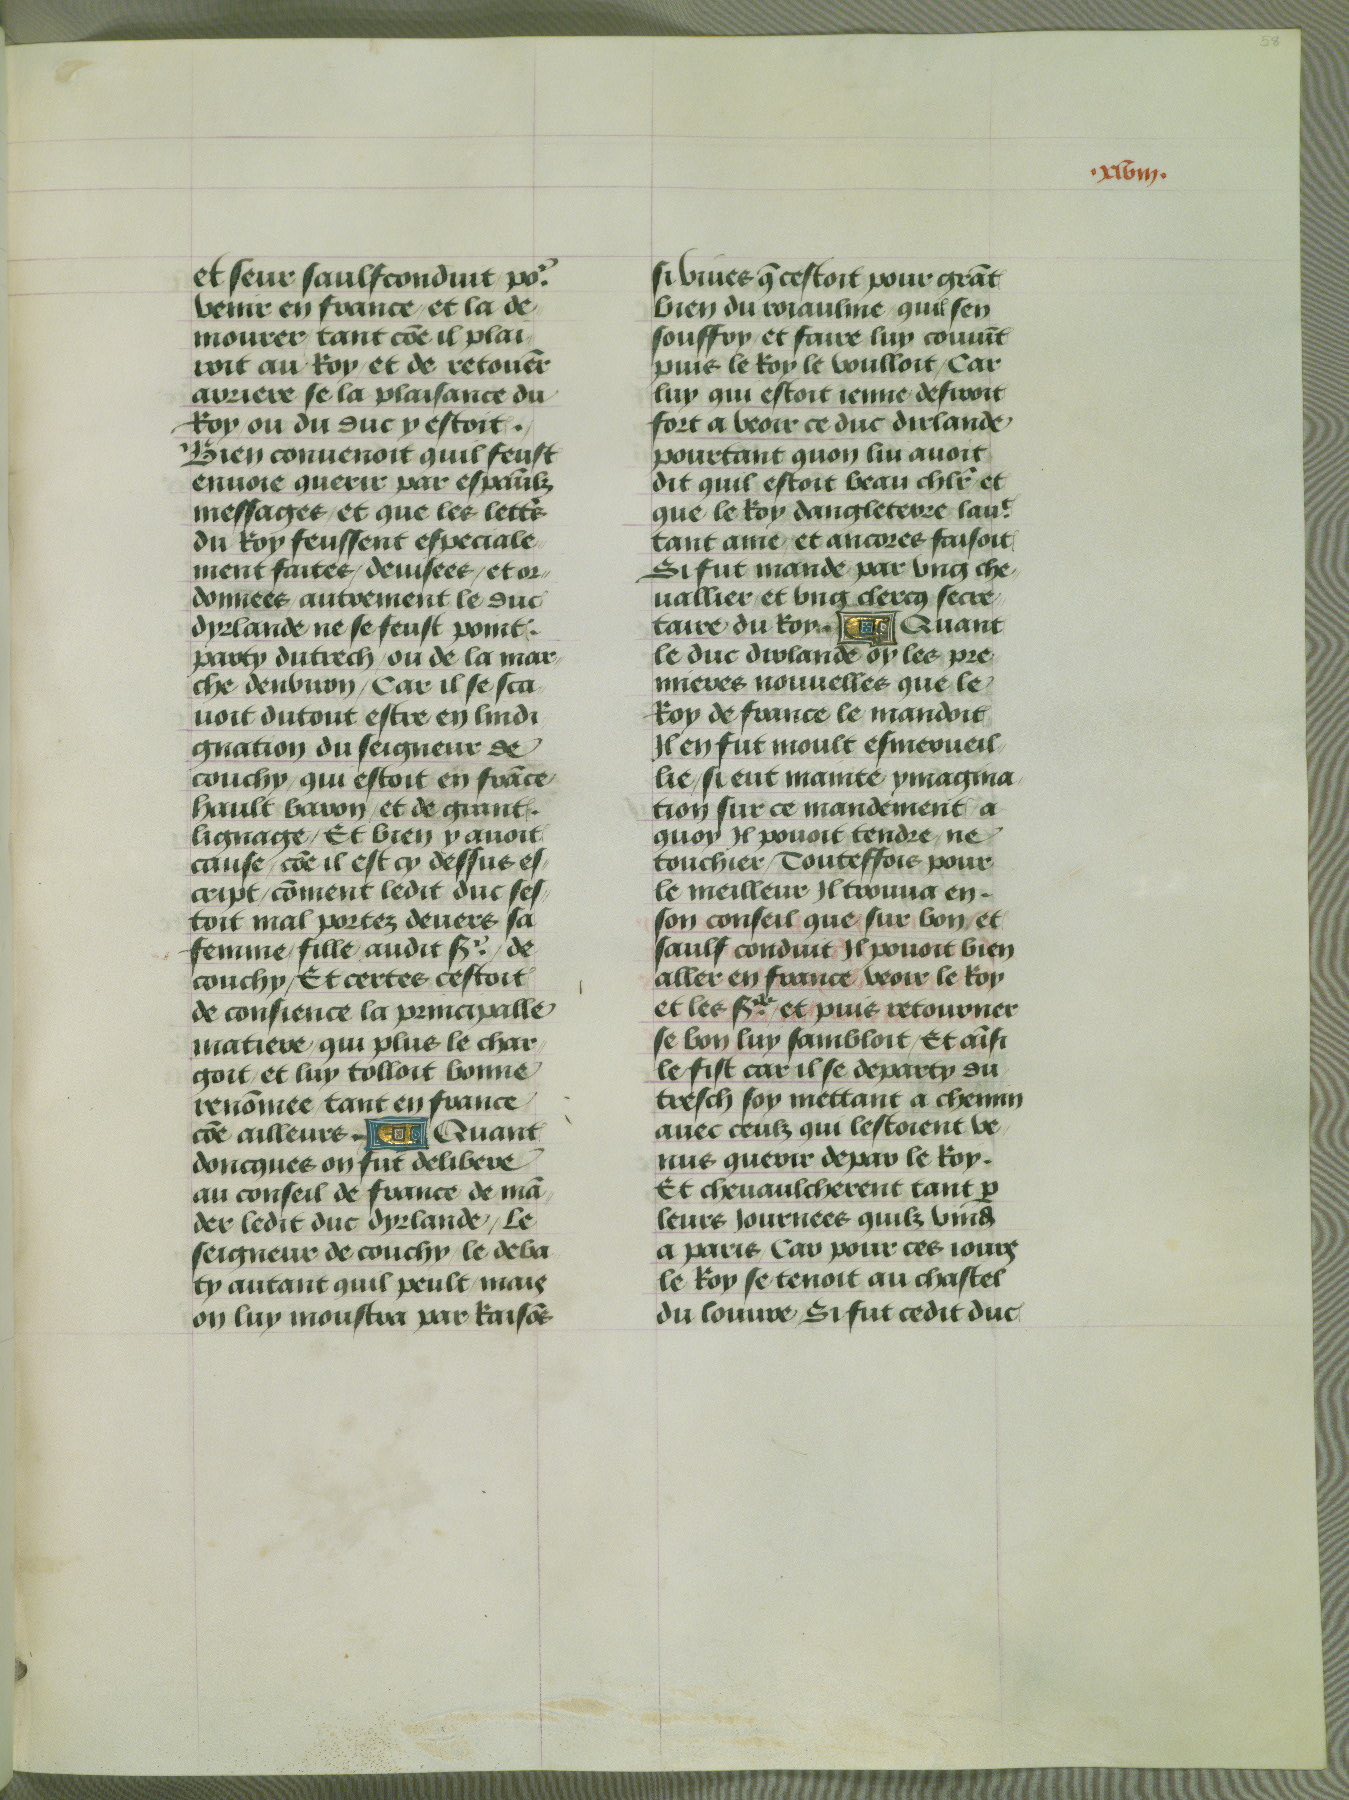 58
·xlviii·
et seur saulfconduit po.r
venir en france / et la de
mourer tant cōe il plai
roit au Roy et de retouēr
arriere se la plaisance du
Roy ou du duc y estoit .
Bien conuenoit quil feust
enuoie querir par espāulz
messages / et que les lettēs
du Roy feussent especiale
ment faites / deuisees / et or
donnees autrement le duc
dyrlande ne se feust point .
party dutrech / ou de la mar
che denuiron / Car il se sca
uoit dutout estre en lindi
gnation du seigneur de
couchy / qui estoit en frāce
hault baron / et de grant .
lignage / Et bien y auoit
cause / cōe il est cy dessus es
cript / cōment ledit duc ses
toit mal portez deuers sa
femme / fille audit sr. / de
couchy / Et certes cestoit
de consience la principalle
matiere / qui plus le char
goit / et luy tolloit bonne
renōmee / tant en france
cōe ailleurs . Quant
doncques on fut delibere
au conseil de france de mā
der ledit duc dyrlande / Le
seigneur de couchy le deba
ty autant quil peult / mais
on luy moustra par Raisōs
si viues q̄ cestoit pour grāt
bien du roiaulme / quil sen
souffry / et faire luy couuīt
puis le Roy le voulloit / Car
luy qui estoit ienne desiroit
fort a veoir ce duc dirlande
pourtant quon lui auoit
dit quil estoit beau chlr̄ et
que le Roy dangleterre lau.t
tant ame / et ancores faisoit
Si fut mande par vng che
uallier / et vng clercq secre
taire du Roy . Quant
le duc dirlande oy les pre
mieres nouuelles que le
Roy de france le mandoit
Il en fut moult esmerueil
lie / si eut mainte ymagina
tion sur ce mandement / a
quoy Il pouoit tendre / ne
touchier / Touteffois pour
le meilleur Il trouua en .
son conseil que sur bon et
saulf conduit Il pouoit bien
aller en france veoir le Roy
et les srs. / et puis retourner
se bon luy sambloit / Et aīsi
le fist car il se departy du
tresch soy mettant a chemin
auec ceulz qui lestoient ve
nus querir depar le Roy .
Et cheuaulcherent tant p̱
leurs Journees quilz vind̄
a paris / Car pour ces iours
le Roy se tenoit au chastel
du louure / Si fut cedit duc